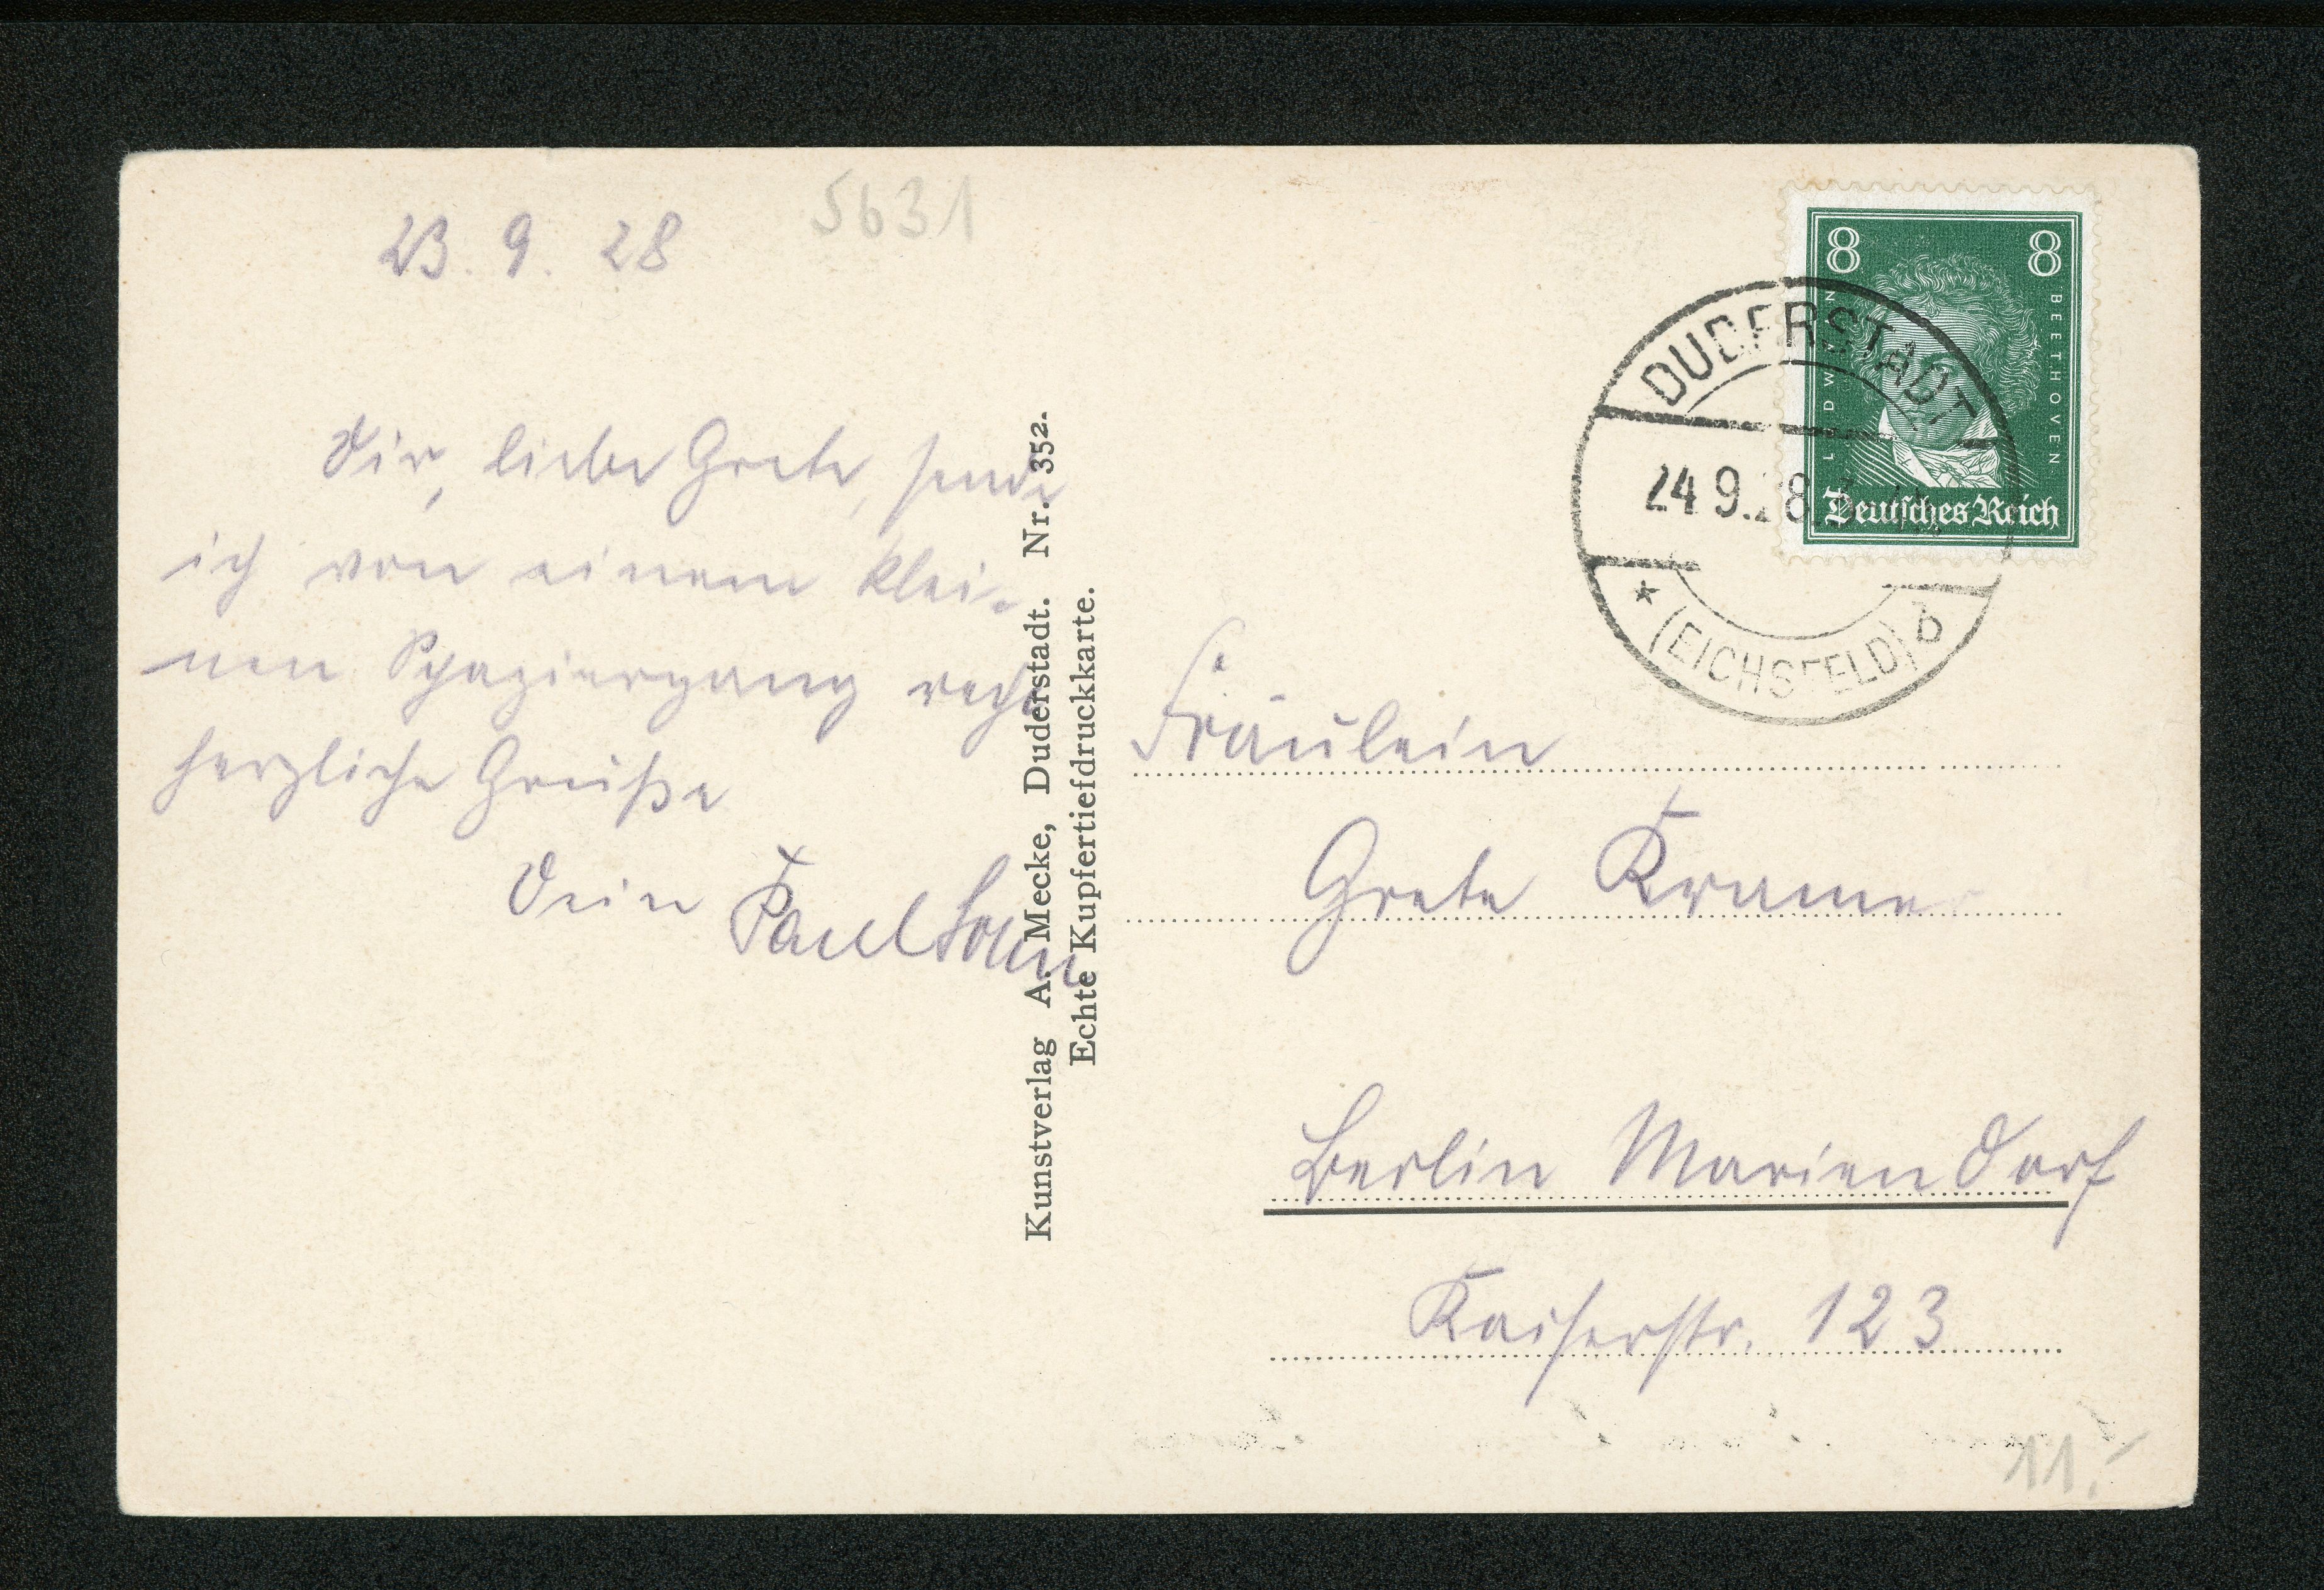 23. 9. 28
5631
Dir, liebe Grete, sende
ich von einem klei-
nen Spaziergang recht
herzliche Grüße
Dein Paul
Kunstverlag A. Mecke, Duderstadt. Nr. 352.
Echte Kupfertiefdruckkarte.
8 8
LUDWIG VAN
BEETHOVEN
Deutsches Reich
DUDERSTADT
24 9.28.
* (EICHSFELD) b
Fräulein
Grete Kramer
Berlin Mariendorf
Kaiserstr. 123
11.-